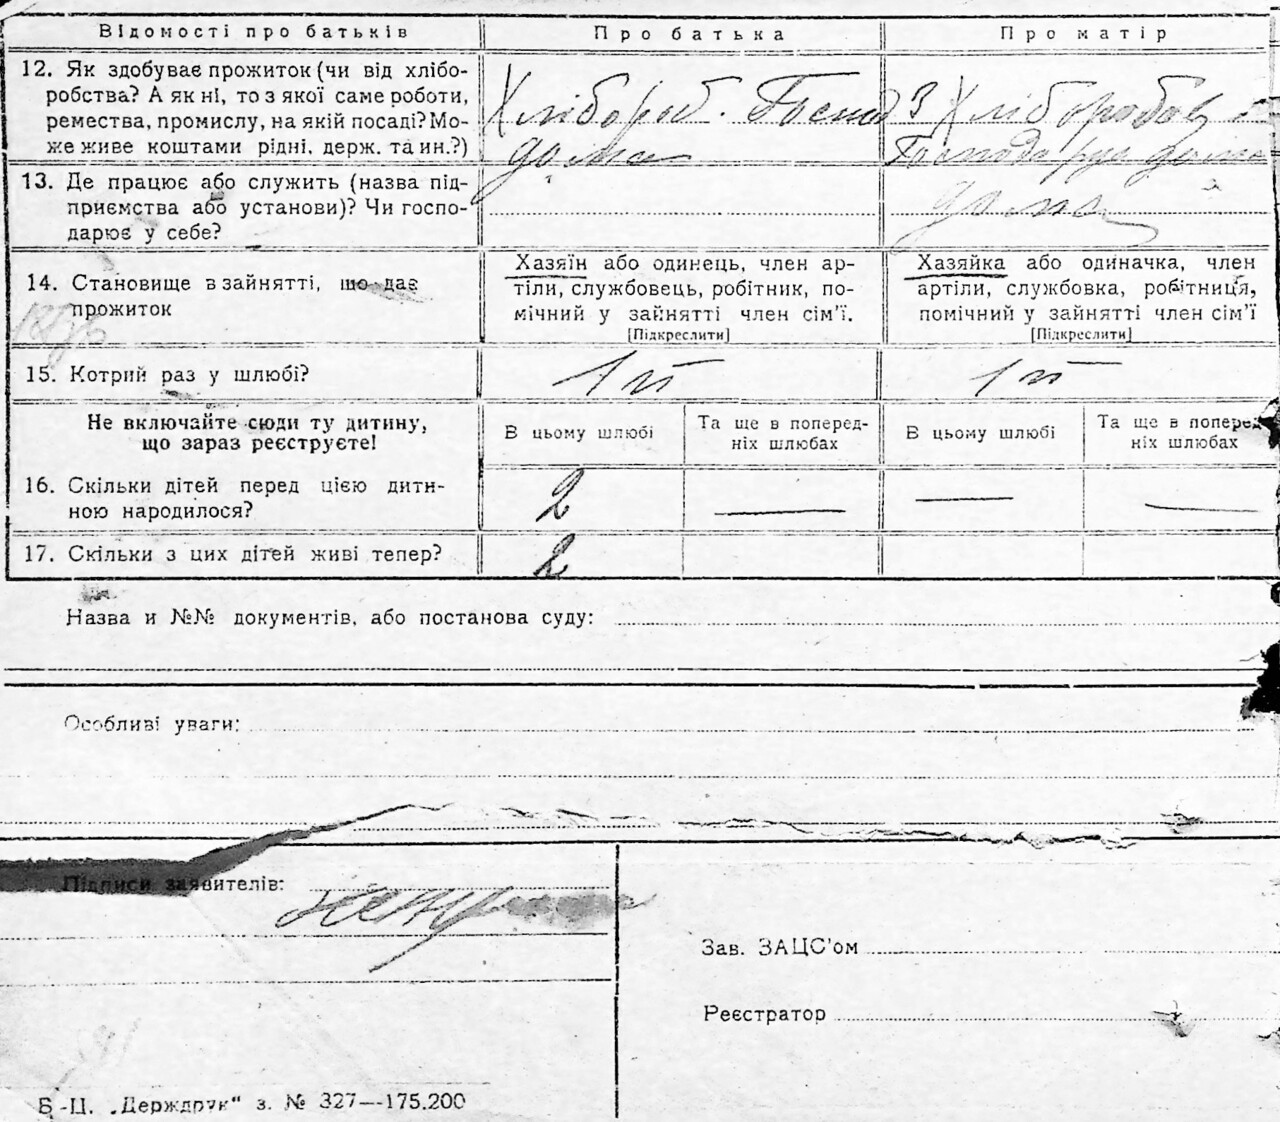 Відомості про батьків
Про батька
Про матір
12. Як здобуває прожиток (чи від хлібо-
робства? А як ні, то з якої саме роботи,
ремества, промислу, на якій посаді? Мо-
же живе коштами рідні, держ. та ин.?)
Хлібороб. Господ
дома
З Хліборобов
Господарує дома
13. Де працює або служить (назва під-
приємства або установи)? Чи госпо-
дарює у себе?
дома
14. Становище в зайнятті, що дає
прожиток
Хазяїн або одинець, член ар-
тілі, службовець, робітник, по-
мічний у зайнятті член сім’ї.
[Підкреслити]
Хазяйка або одиначка, член
артіли, службовка, робітниця,
помічний у зайнятті член сім’ї
[Підкреслити]
15. Котрий раз у шлюбі?
1й
1й
Не включайте сюди ту дитину,
що зараз реєструєте!
В цьому шлюбі
Та ще в поперед-
ніх шлюбах
В цьому шлюбі
Та ще в поперед-
ніх шлюбах
16. Скільки дітей перед цією дити-
ною народилося?
2
—
—
—
17. Скільки з цих дітей живі тепер?
2
Назва и №№ документів, або постанова суду:
Особливі уваги:
Підписи заявителів:
Зав. ЗАЦС’ом
Реєстратор
Б-Ц. „Держдрук“ з. № 327—175.200